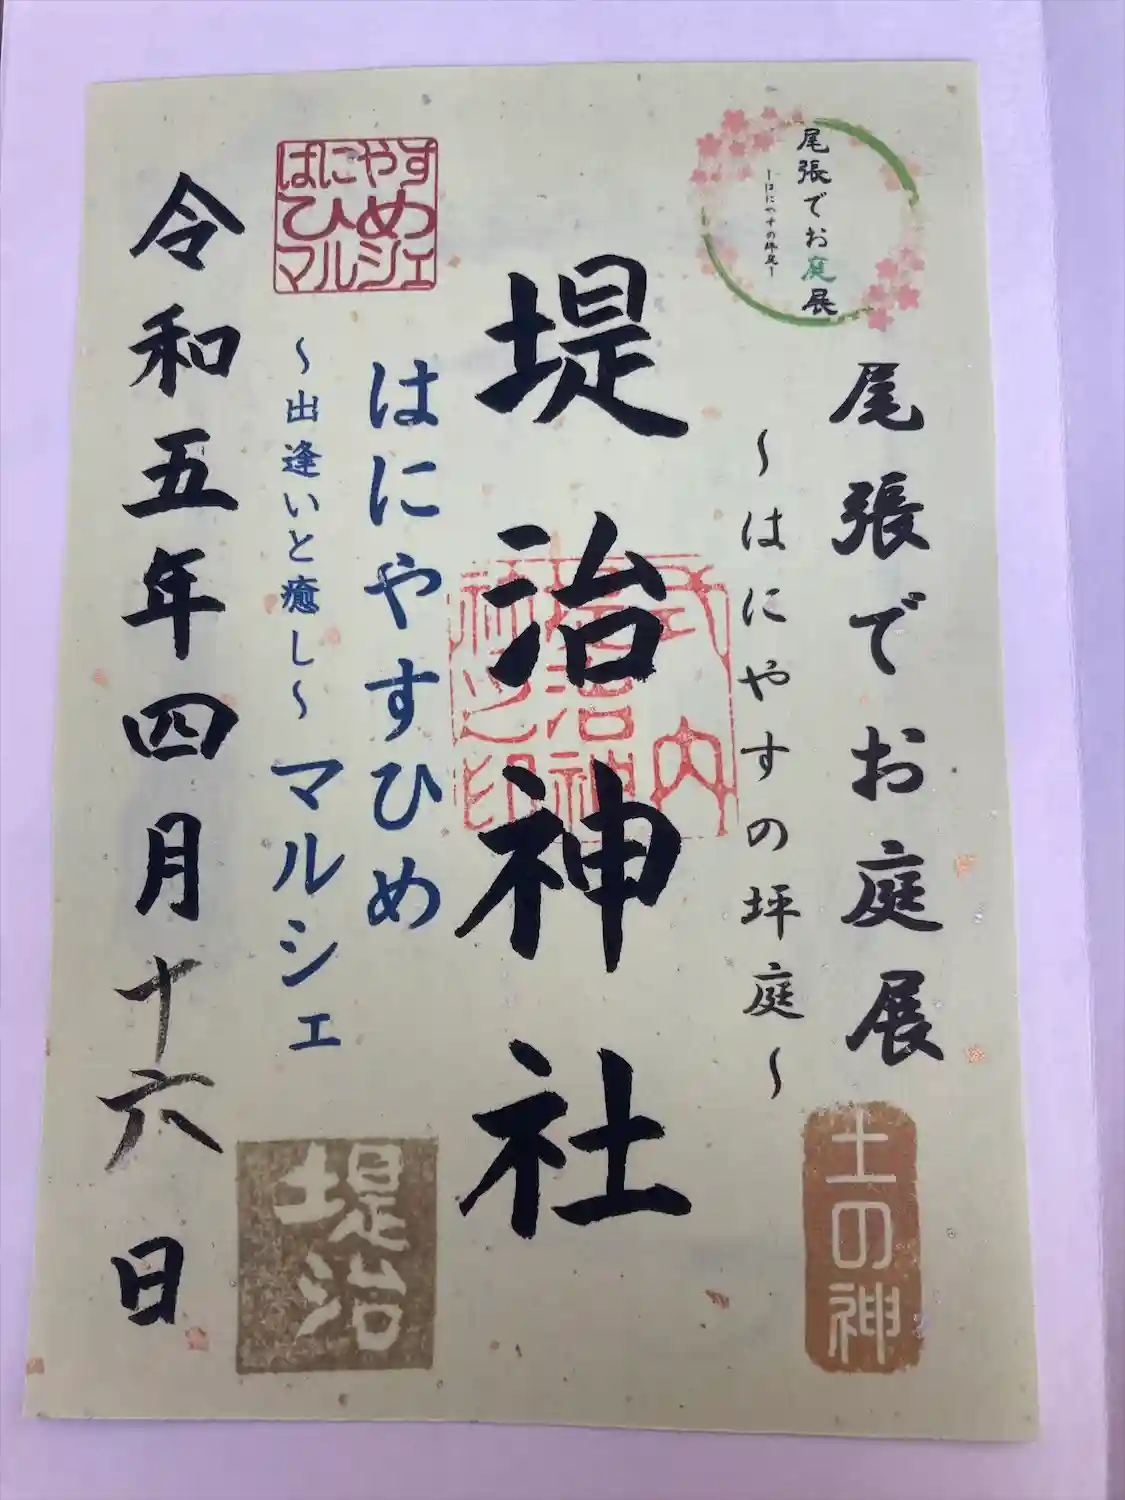 尾張でお庭展
ーはにやすの坪庭ー
尾張でお庭展
～はにやすの坪庭～
土の神
堤治神社
式内
堤治神
社之印
はにやす
ひめ
マルシェ
はにやすひめ
～出逢いと癒し～マルシェ
堤治
令和五年四月十六日